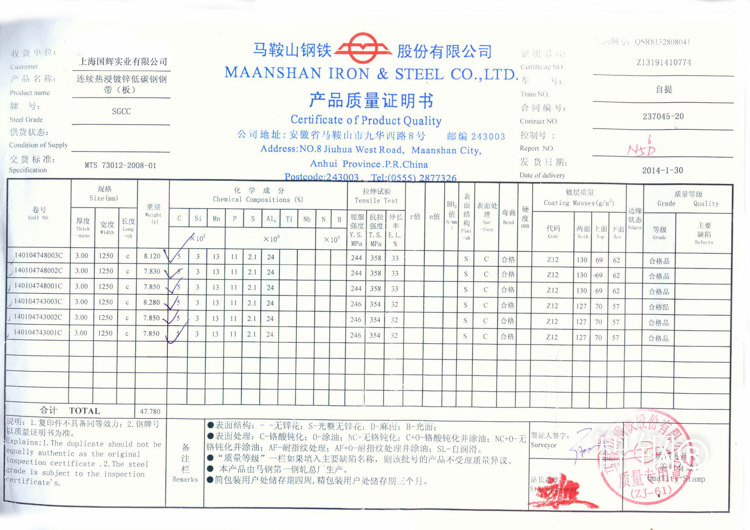 马鞍山钢铁 股份有限公司
MAANSHAN IRON & STEEL CO.,LTD.
产品质量证明书
Certificate of Product Quality
公司地址:安徽省马鞍山市九华西路8号 邮编 243003
Address:NO.8 Jiuhua West Road, Maanshan City,
Anhui Province.P.R.China
Postcode:243003 , Tel:(0555) 2877326
收货单位:
Customer
上海国辉实业有限公司
产品名称:
Product Name
连续热浸镀锌低碳钢钢带(板)
牌 号:
Steel Grade
SGCC
供货状态:
Condition of Supply
交货标准:
Specification
MTS 73012-2008-01
QSRS132808041
证明书号:
Certificate NO.
Z13191410774
车 号:
Train NO.
自提
合同编号:
Contract NO.
237045-20
控制号:
Report NO.
N5D
发货日期:
Date of delivery
2014-1-30
卷号 Coil No. 规格 Size(mm) 重量 Weight (t) 化学成分 Chemical Compositions (%) 拉伸试验 Tensile Test 镀层质量 Coating Masses(g/m²) 质量等级 Grade Quality
厚度 宽度 Width 长度 C Si Mn P S Als Ti Nb N B 屈服强度 Y.S. MPa 抗拉强度 T.S. MPa 伸长率 E.L. % r值 n值 BH2值 N/mm² 表面结构 表面处理 弯曲 Bend 硬度 代码 Code 两面 上面 下面 边缘状态 等级 Grade 主要缺陷 Defects
×10² ×10³ ×10⁴
140104748003C 3.00 1250 c 8.120 5 3 13 11 2.1 24 244 358 33 S C 合格 Z12 130 69 62 合格品
140104748002C 3.00 1250 c 7.830 5 3 13 11 2.1 24 244 358 33 S C 合格 Z12 130 69 62 合格品
140104748001C 3.00 1250 c 7.850 5 3 13 11 2.1 24 244 358 33 S C 合格 Z12 130 69 62 合格品
140104743003C 3.00 1250 c 8.280 5 3 13 11 2.1 24 246 354 32 S C 合格 Z12 127 70 57 合格品
140104743002C 3.00 1250 c 7.850 5 3 13 11 2.1 24 246 354 32 S C 合格 Z12 127 70 57 合格品
140104743001C 3.00 1250 c 7.850 5 3 13 11 2.1 24 246 354 32 S C 合格 Z12 127 70 57 合格品
合计 TOTAL 47.780
说明:1.复印件不具备同等效力;2.钢牌号
以质量证明书为准。
Explains:1.The duplicate should not be
equally authentic as the original
inspection certificate .2.The steel
grade is subject to the inspection
certificate's.
备注栏 Remarks
●表面结构:- -无锌花; S-光整无锌花; D-麻面; B-光面;
●表面处理: C-铬酸钝化; O-涂油; NC-无铬钝化; C+O-铬酸钝化并涂油; NC+O-无
铬钝化并涂油; AF-耐指纹处理; AF+O-耐指纹处理并涂油; SL-自润滑。
● “质量等级”一栏如果填入主要缺陷名称,则该批号的产品不受理质量异议。
● 本产品由马钢第一钢轧总厂生产。
●简包装用户处储存期四周,精包装用户处储存期三个月。
签证人签字:
Surveyor
Quality Stamp
质量专用章
(ZJ-61)